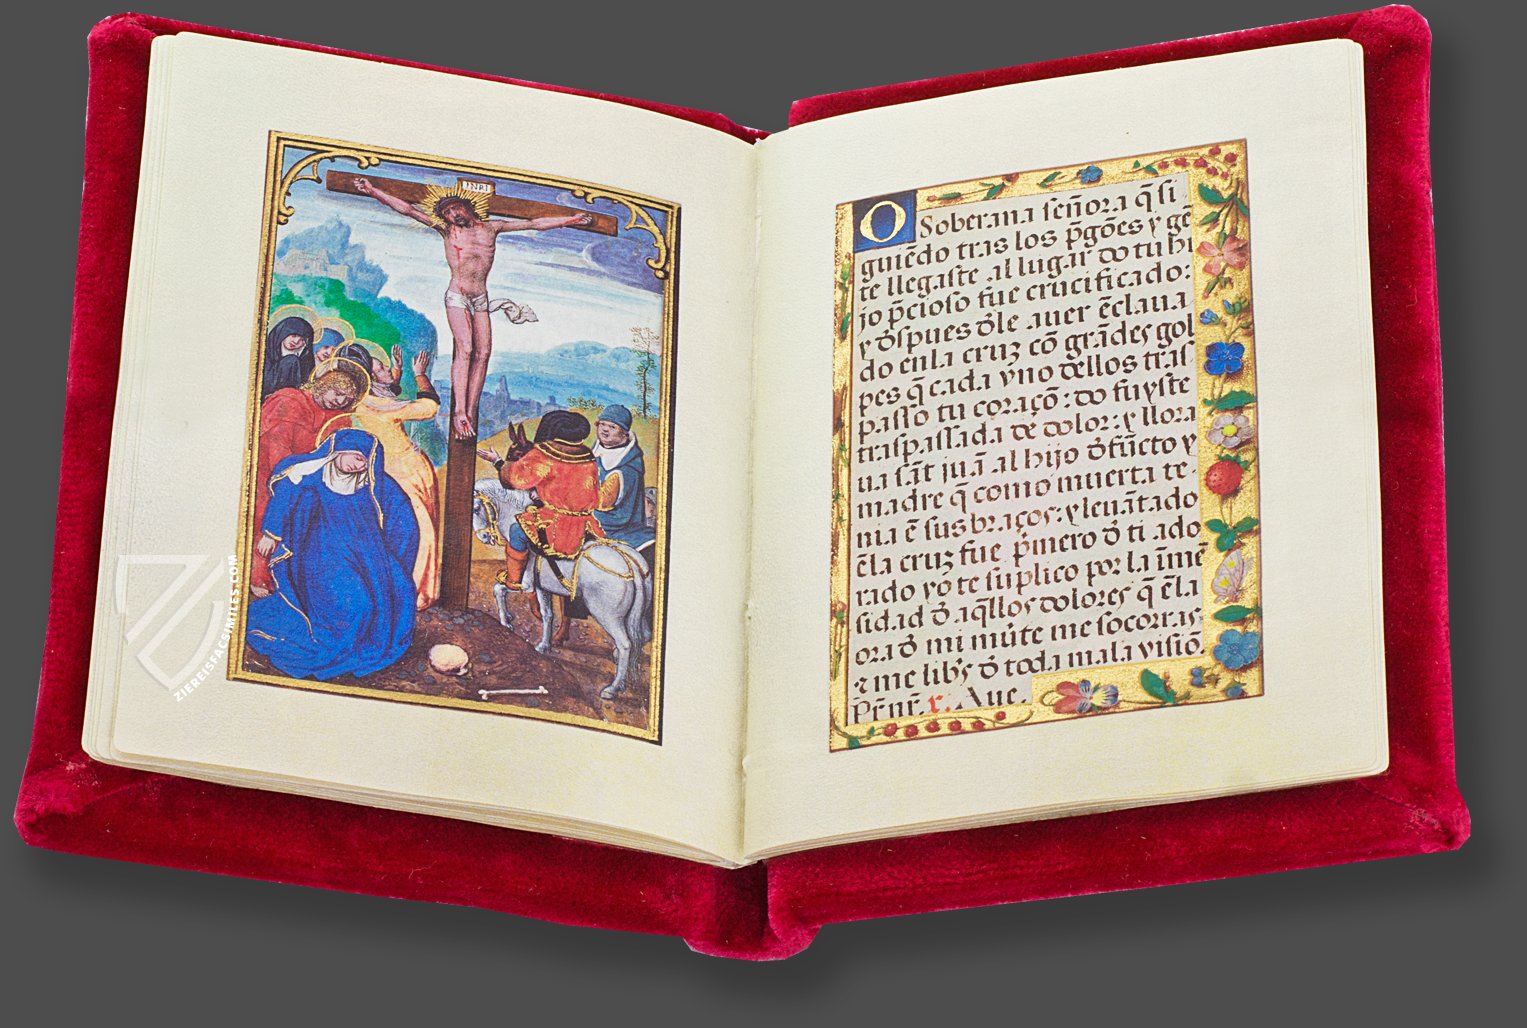 INRI
O Soberana señora q̃ si
guiẽdo tras los p̃gões y gẽ
te llegaste al lugar do tu hi
jo p̃cioso fue crucificado:
y d̃spues d̃le auer ẽclaua
do enla cruz cõ grãdes gol
pes q̃ cada vno dellos tras
passo tu coraçõ: do fuyste
traspassada de dolor: y llora
ua sãt juã al hijo d̃fũcto y
madre q̃ como muerta te
nia ẽ sus braços: y leuãtado
ẽla cruz fue p̃mero d̃ ti ado
rado yo te suplico por la ĩmẽ
sidad d̃ aq̃llos dolores q̃ ẽla
ora d̃ mi mũte me socorras
⁊ me libr̃s d̃ toda mala visiõ.
Pr̃ nr̃. r. Aue.
ZIEREISFACSIMILES.COM